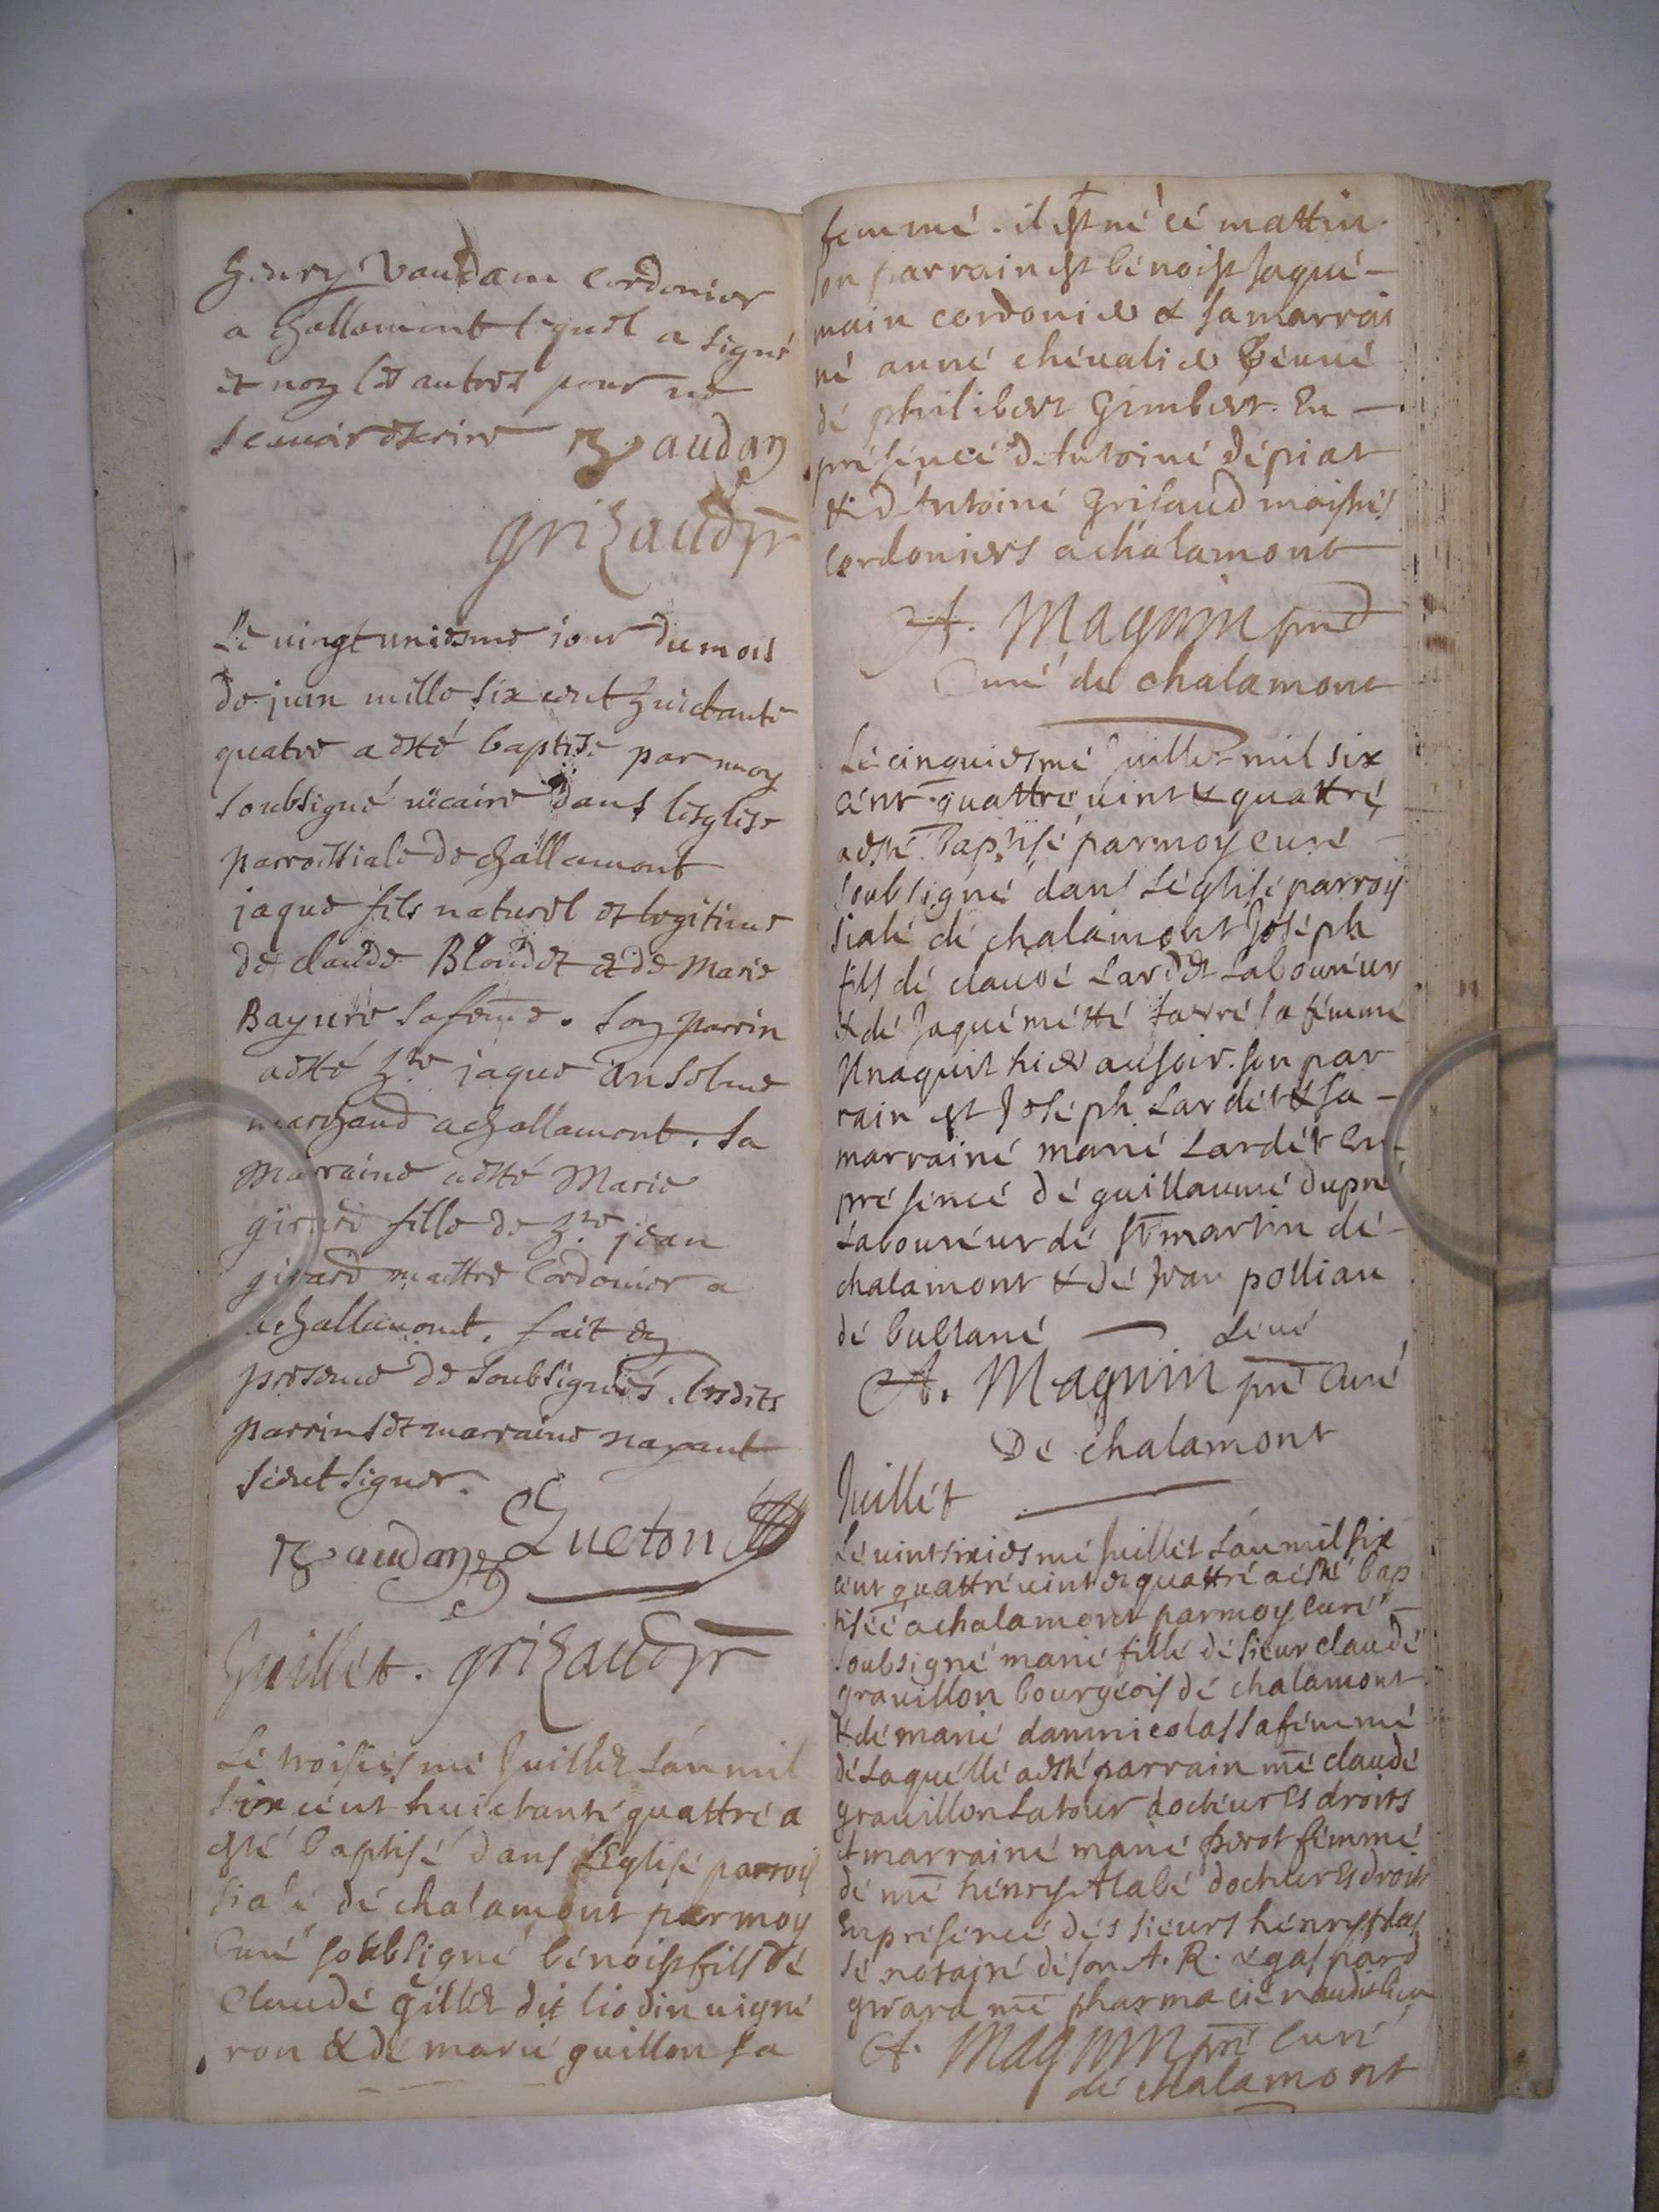 henry Vaudam Cordonier
a Challamont lequel a signé
et non les autres pour ne
scauoir escrire Vaudan
grizaud ptr
Le uingt uniesme iour du mois
de juin mille six cent huictante
quatre a esté baptise par moy
soubsigné uicaire dans lesglise
parroissiale de Challamont
jaque fils naturel et legitime
de claude Bloudet & de Marie
sa feme. son parrin
a esté hte jaque Anselme
marchand a Challamont. sa
Marraine a esté Marie
girard fille de hte jean
girard maittre Cordonier a
Challamont. fait en
presence de soubsignés. lesdits
parrins et marraine nayant
sceut signer.
Vaudan Gueton
Juillet. grizaud ptr
Lé troisiesmé Juillet L'an mil
six cént huictanté quattré a
esté baptisé dans L'Eglisé parrois
sialé dé chalamont par moy
Curé soubsigné bénoist fils dé
Claudé Gillet dit liodin uigné
ron & dé marié guillon sa
femmé. il est né cé mattin
son parrain est bénoist Jaqué-
main cordonier & sa marrai
né anné chéualier Veuué
dé philibert Gimbert. En
présencé d'Antoiné Dépiat
& d'Antoiné Grisaud maistrés
Cordoniers a chalamont
A. Magnin pre
Curé de chalamont
Lé cinquiesmé Juillet mil six
cént quattré uint & quattré
a esté Baptisé par moy curé
soubsigné dans L'églisé parroys
sialé dé chalamont Joséph
fils dé claudé Lardet Labouréur
& dé Jaquémétté sa fémmé
Il naquit hier au soir. son par
rain est Joséph Lardét & sa
marrainé marié Lardét En
présencé dé guillaumé dupré
Labouréur dé St martin dé
chalamont & dé Jean pollian
dé
A. Magnin pre Curé
Dé chalamont
Juillét
Lé uint sixiesmé Juillet L'an mil six
cént quattré uint & quattré a ésté bap
tiséé a chalamont par moy Curé
soubsigné marié fillé dé sieur claudé
grauillon bourgéois dé chalamont
& dé marié damnicolas sa fémmé
dé Laquéllé a esté parrain mé claudé
grauillon Latour docteur és droits
& marrainé marié perot fémmé
dé mé hénry Alabé docteur és droits
En présencé dés sieurs hénry
sé notairé dé son A. R. & gaspard
girard mé pharmacie
A. Magnin pré Curé
dé chalamont